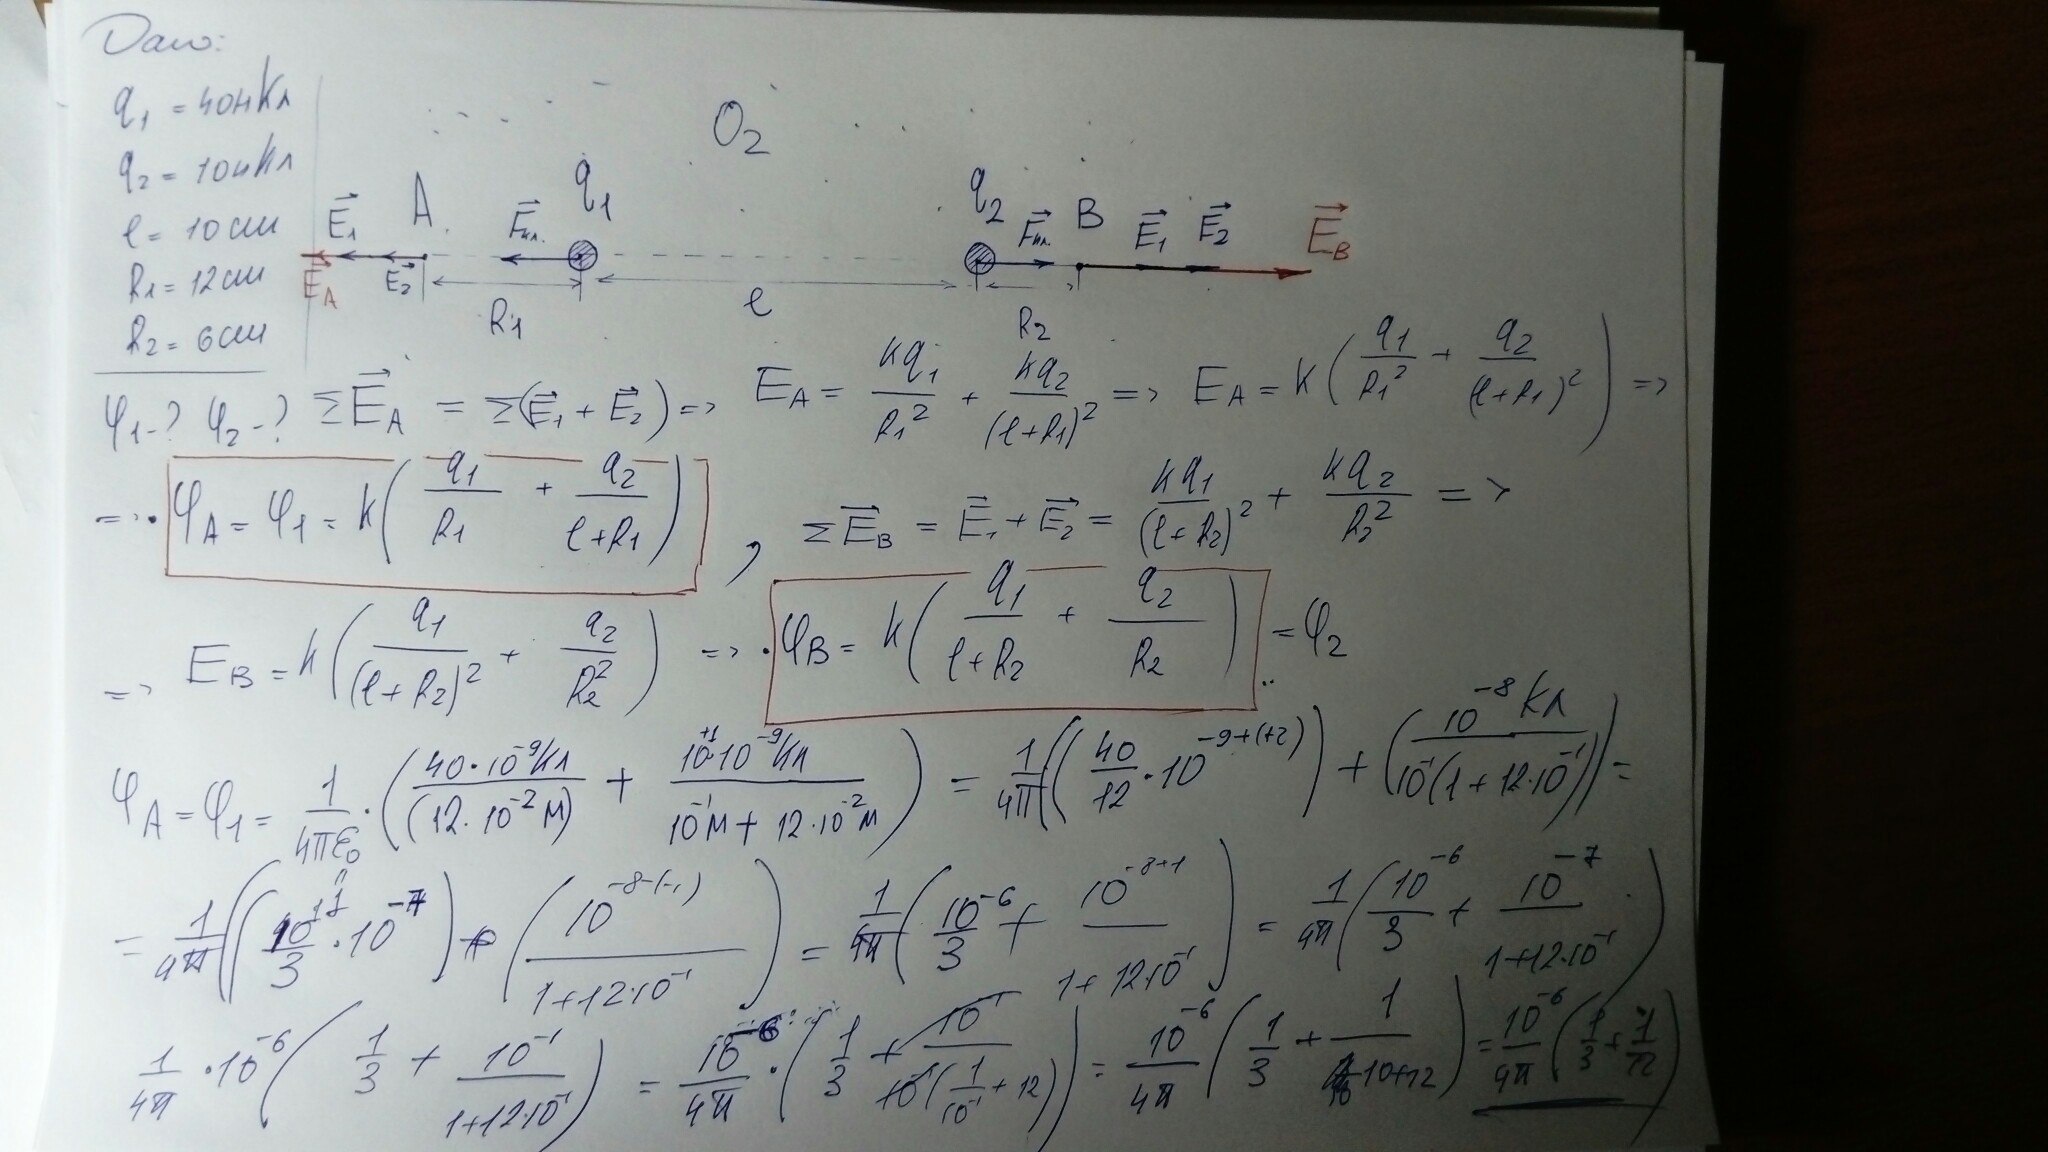 Дано:
q₁ = 40нКл
q₂ = 10нКл
l = 10см
R₁ = 12см
R₂ = 6см
φ₁-? φ₂-?
O₂
A q₁ q₂ B
E⃗₁ F⃗кл. F⃗кл. E⃗₁ E⃗₂ E⃗_B
E⃗_A E⃗₂
R₁ l R₂
ΣE⃗_A = Σ(E⃗₁ + E⃗₂) => E_A = kq₁/R₁² + kq₂/(l+R₁)² => E_A = k(q₁/R₁² + q₂/(l+R₁)²) =>
=> φ_A = φ₁ = k(q₁/R₁ + q₂/(l+R₁)) , ΣE⃗_B = E⃗₁ + E⃗₂ = kq₁/(l+R₂)² + kq₂/R₂² =>
=> E_B = k(q₁/(l+R₂)² + q₂/R₂²) => φ_B = k(q₁/(l+R₂) + q₂/R₂) = φ₂
φ_A = φ₁ = 1/(4πε₀) · (40·10⁻⁹Кл/(12·10⁻²м) + 10⁺¹·10⁻⁹Кл/(10⁻¹м + 12·10⁻²м)) = 1/4π((40/12 · 10^(-9+(+2))) + (10⁻⁸Кл/(10⁻¹(1+12·10⁻¹)))) =
= 1/4π((10¹/3 · 10⁻⁷) + (10^(-8-(-1))/(1+12·10⁻¹))) = 1/4π(10⁻⁶/3 + 10⁻⁸⁺¹/(1+12·10⁻¹)) = 1/4π(10⁻⁶/3 + 10⁻⁷/(1+12·10⁻¹))
1/4π · 10⁻⁶(1/3 + 10⁻¹/(1+12·10⁻¹)) = 10⁻⁶/4π · (1/3 + 10⁻¹/(10⁻¹(1/10⁻¹ + 12))) = 10⁻⁶/4π(1/3 + 1/(10+12)) = 10⁻⁶/4π(1/3 +